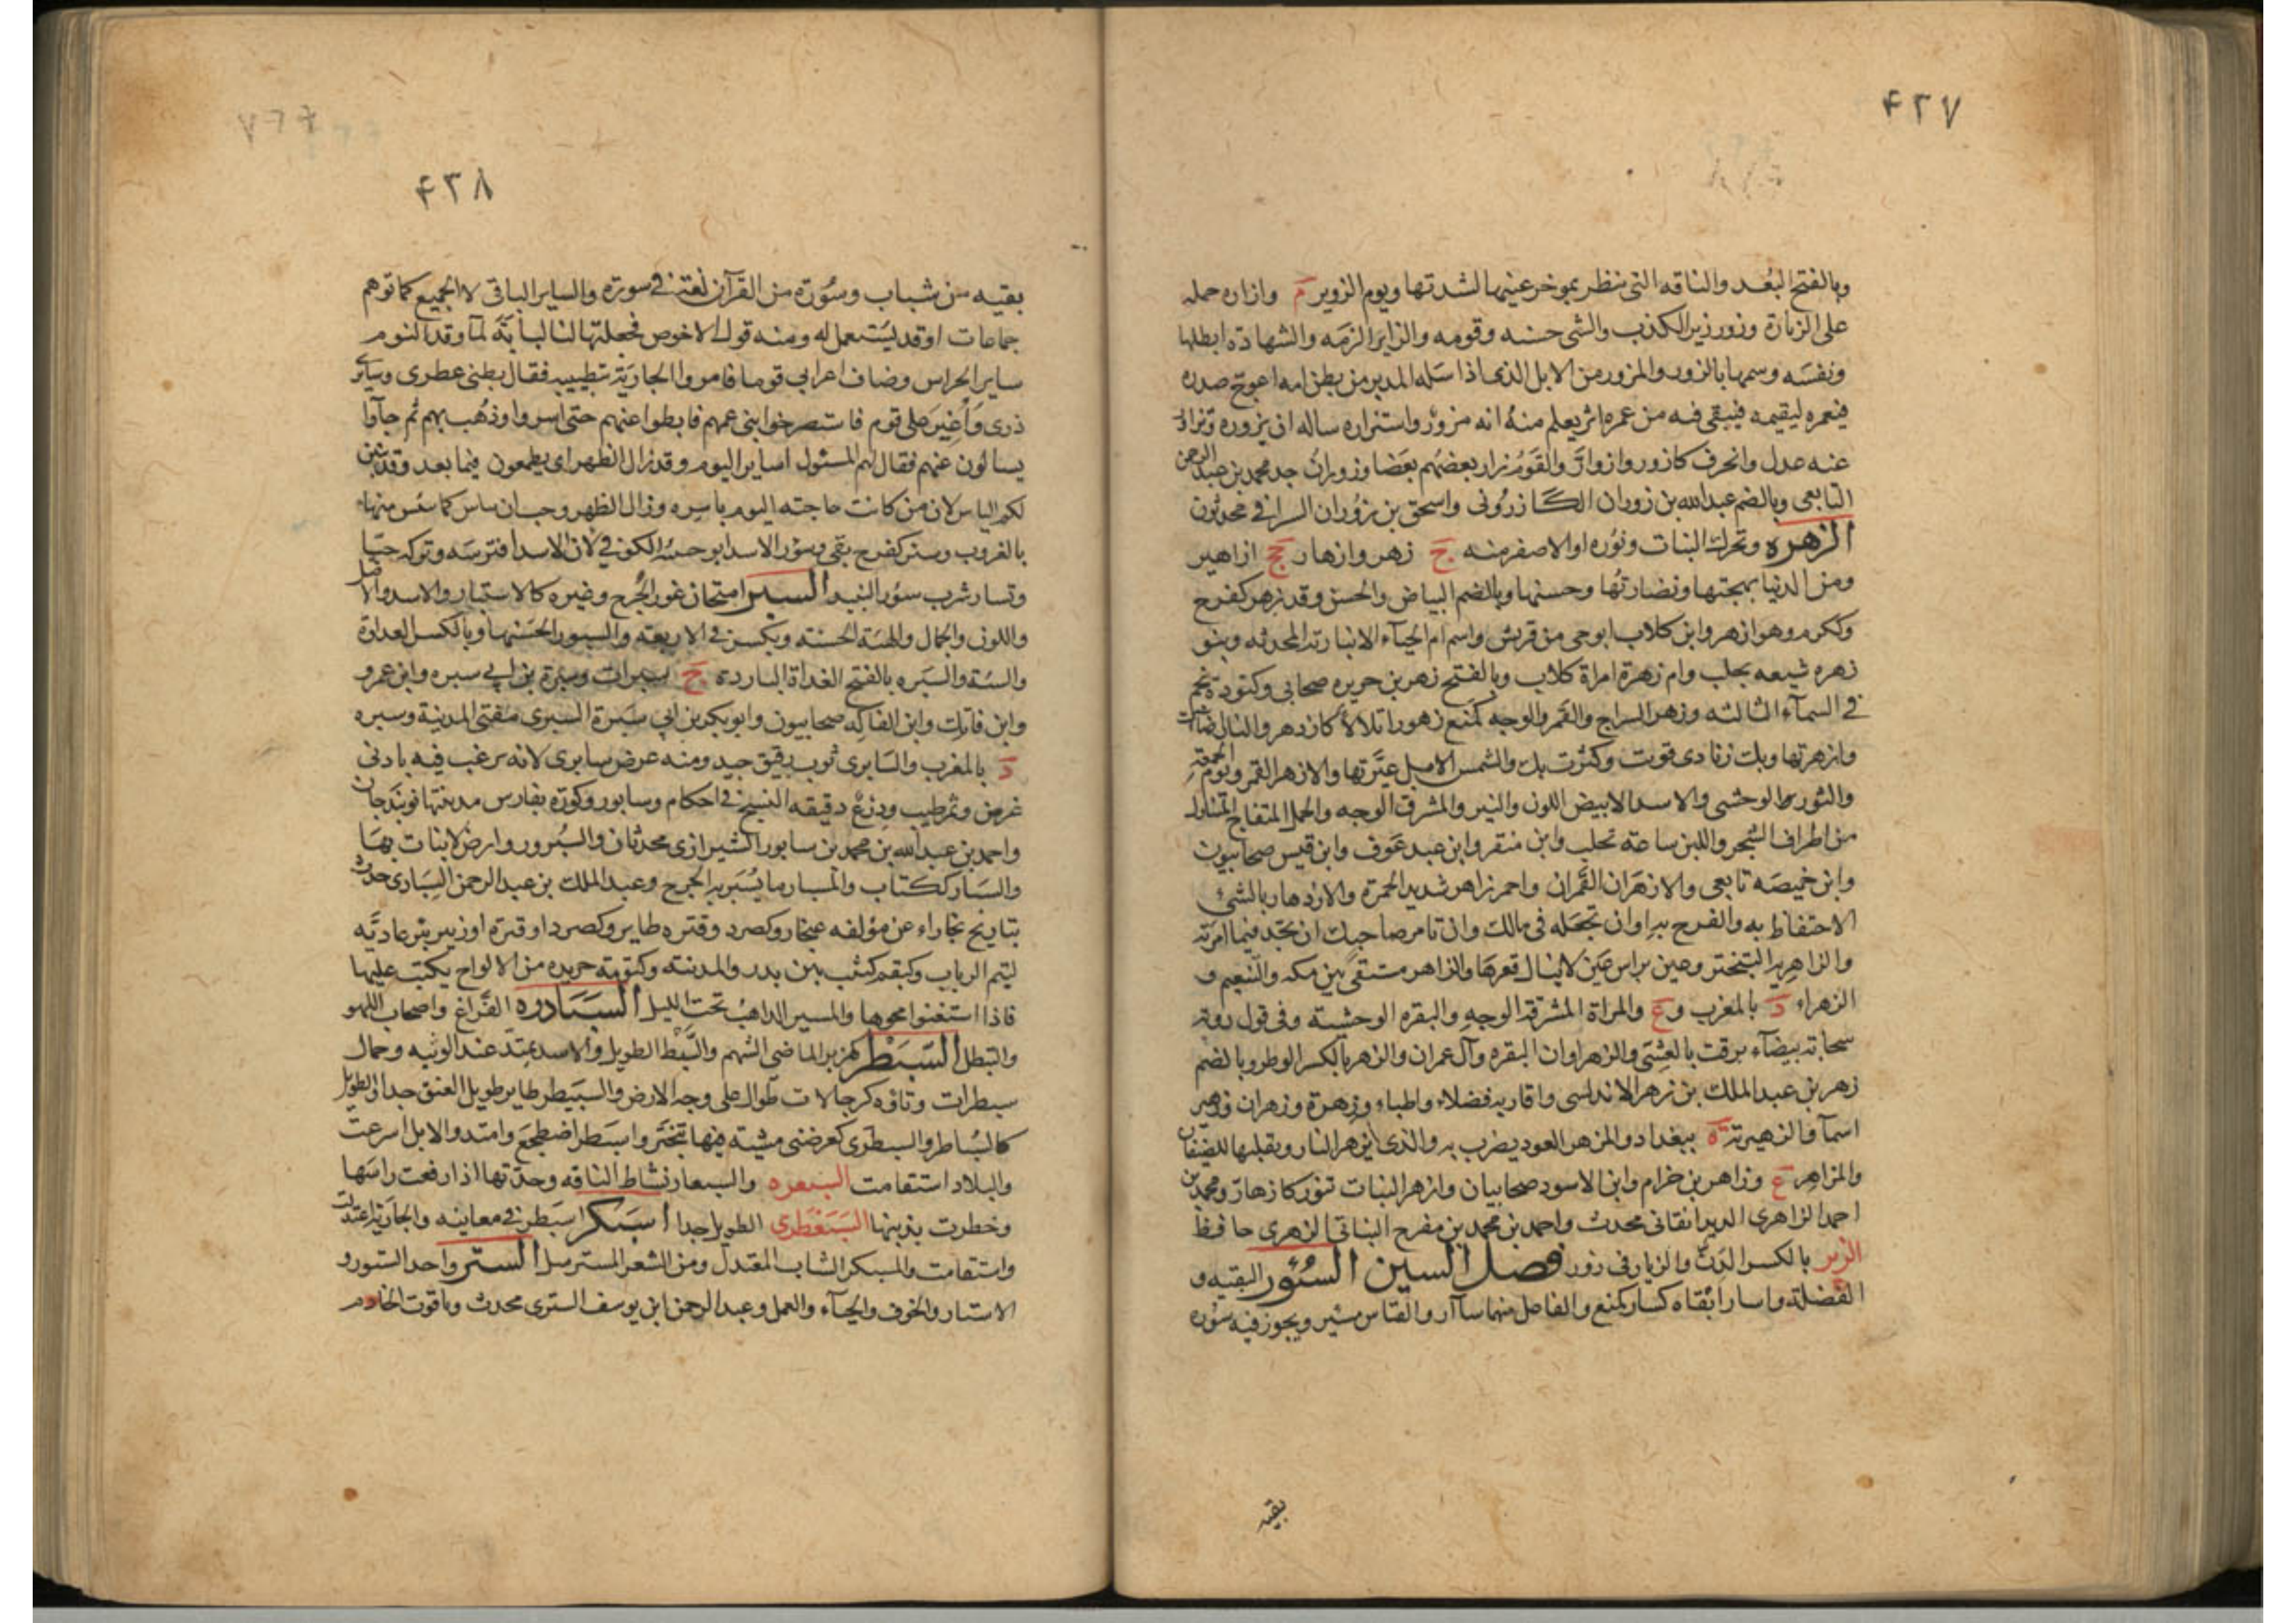 ۴۲۷
وبالفتح البُعد والناقه التى تنظر بموخر عينيها لشدتها ويوم الزوير م وازاره حمله
على الزيارة وزور زين الكذب والشى حسنه وقومه والزاير الزمه والشهادة ابطلها
ونفسه وسمها بالزور والمزور من الابل الذى اذا سله المدير من بطن امه اعوج صدره
فيغمزه ليقيمه فيبقى فيه من غمزه اثر يعلم منه انه مزوّر واستزاره ساله ان يزوره وتزاور
عنه عدل وانحرف كازور وازوارّ والقوم زار بعضهم بعضا وزوران جد محمد بن عبد الرحمن
التابعى وبالضم عبدالله بن زوران الكازرونى واسحق بن زوران السرافى محدثون
الزهره وتحرك النبات ونوره او الاصفر منه ج زهر وازهار جج ازاهير
ومن الدنيا بهجتها ونضارتها وحسنها وبالضم البياض والحسن وقد زهر كفرح
وككرم وهو ازهر وابن كلاب ابو حى من قريش واسم ام الحيآء الانبارية المحدثه وبنو
زهره شيعه بحلب وام زهرة امراة كلاب وبالفتح زهر بن حريره صحابى وكتودة نجم
فى السمآء الثالثه وزهر السراج والقمر والوجه كمنع زهورا تلالأ كازدهر والنار اضات
وازهرتها وبك زنادى قويت وكثرت بك والشمس الابل غيّرتها والازهر القمر ويوم الجمعة
والثور الوحشى والاسد الابيض اللون والنير والمشرق الوجه والجمل المتفاج المتناول
من اطراف الشجر واللبن ساعة تحلب وابن منقر وابن عبد عوف وابن قيس صحابيون
وابن خميصه تابعى والازهران القمران واحمر زاهر شديد الحمرة والازدهار بالشئ
الاحتفاظ به والفرح به او ان تجعله فى بالك وان تامر صاحبك ان يجد فيما امرته
والزاهريه التبختر وعين براس عين لاينال قعرها والزاهر مستقى بين مكه والتنعيم و
الزهراء د بالمغرب وع والمراة المشرقة الوجه والبقره الوحشية وفى قول روبة
سحابة بيضآء برقت بالعشى والزهراوان البقره وآل عمران والزهر بالكسر الوطر وبالضم
زهر بن عبد الملك بن زهر الاندلسى واقاربه فضلاء واطباء وزهرة وزهران وزهير
اسمآ والزهيرية ة ببغداد والمزهر العود يضرب به والذى يزهر النار ويقلبها للضيفان
والمزاهر ع وزاهر بن حزام وابن الاسود صحابيان وازهر النبات تنور كازهارّ ومحمد بن
احمد الزاهرى الديدانقانى محدث واحمد بن محمد بن مفرح النباتى الزهرى حافظ
الزير بالكسر الدنّ والزيار فى زور فصل السين السُئور البقيه و
الفضلة واسار ابقاه كسار كمنع والفاعل منهما سآار والقياس مسئر ويجوز فيه سوره
بقيه
۴۲۸
بقيه من شباب وسُورة من القرآن لغة فى سورة والساير الباقى لا الجميع كما توهم
جماعات او قد يستعمل له ومنه قول الاخوص فجلتها لنا لبابة لما وقد النوم
ساير الحراس وضاف اعرابى قوما فامروا الجارية بتطييبه فقال بطنى عطرى وساير
ذرى واُغير على قوم فاستصرخوا بنى عمهم فابطوا عنهم حتى اسروا وذُهب بهم ثم جآوا
يسالون عنهم فقال لهم المسئول اساير اليوم وقد زال الظهر اى يطمعون فيما بعد وقد تبين
لكم الياس لان من كانت حاجته اليوم باسره وزال الظهر وجب ان يياس كما يئس منها
بالغروب وسئر كفرح بقى وسؤر الاسد ابو خسئه الكوفى لان الاسد افترسه وتركه حيّا
وتسار شرب سؤر النبيذ السبر امتحان غور الجُرح وغيره كالاستبار والاسد والاصل
واللون والجمال والهيئة الحسنه ويكسر فى الاربعه والمسبور الحسنها وبالكسر العداوة
والسبة والسبره بالفتح الغداة الباردة ج سبرات وسبرة بن ابى سبره وابن عمرو
وابن فاتك وابن الفاكه صحابيون وابو بكر بن ابى سبرة السبرى مفتى المدينة وسبره
د بالمغرب والسابرى ثوب رقيق جيد ومنه عرض سابرى لانه يرغب فيه بادنى
عرض وتمر طيب ودرع دقيقه النسج فى احكام وسابور وكورة بفارس مدينتها نوبندجان
واحمد بن عبدالله بن محمد بن سابور الشيرازى محدثان والسُبرور وارض لانبات بها
والسبار ككتاب والمسبار ما يُسبر به الجرح وعبد الملك بن عبد الرحمن السبارى حدث
بتاريخ بخاراء عن مؤلفه غنجار وكصرد وقتره طاير وكصرد او قترة او زبير بئر عاديه
لتيم الرباب وكبقم كثب بين بدر والمدينه وكتنومة جريده من الالواح يكتب عليها
فاذا استغنوا محوها والمسبر الذاهب تحت الليل السبادره الفراغ واصحاب اللهو
والتبطل السّبطر كهزبر الماضى الشهم والسّبط الطويل والاسد يمتد عند الوثبه وجمال
سبطرات وناقه كرجالات طوال على وجه الارض والسبيطر طاير طويل العنق جدا والطويل
كالسُباطر والسبطرى كعرضنى مشية فيها تبختر واسبطر اضطجع وامتد والابل اسرعت
والبلاد استقامت السبعره والسبعار نشاط الناقه وحدتها اذا رفعت راسها
وخطرت بذنبها السبغطرى الطويل جدا اسبكر اسبطر فى معانيه والجارية اعتدلت
واستقامت والمسبكر الشاب المعتدل ومن الشعر المسترسل الستر واحد الستور و
الاستار والخوف والحيآء والعمل وعبد الرحمن ابن يوسف السترى محدث وياقوت الخادم